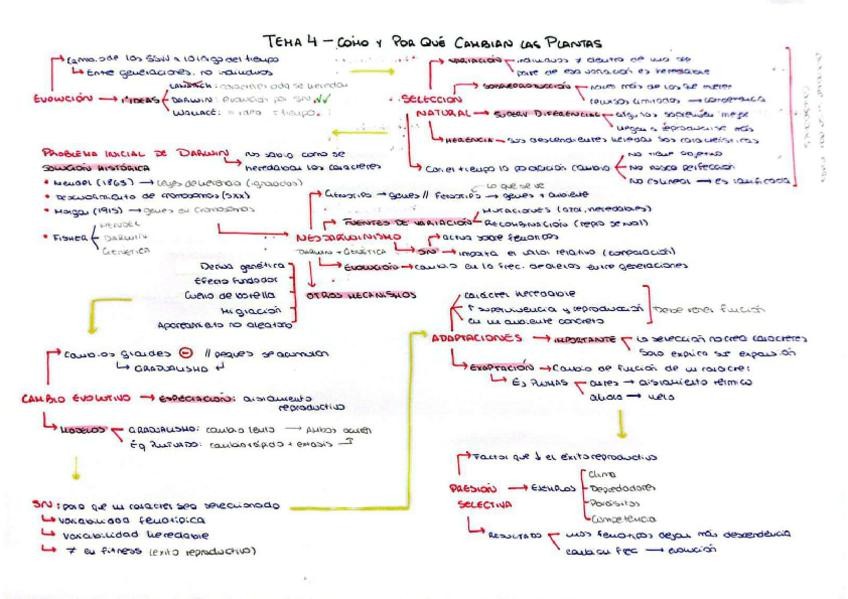 TEMA 4 – CÓMO Y POR QUÉ CAMBIAN LAS PLANTAS
EVOLUCIÓN
Cambios de los SSVV a lo largo del tiempo
Entre generaciones, no individuos
IDEAS
LAMARCK:
DARWIN: evolución por SN
WALLACE: = idea + tiempo.
SELECCIÓN NATURAL
VARIACIÓN
individuos ≠ dentro de una
parte de esa variación es heredable
SOBREPRODUCCIÓN
recursos limitados → competencia
SUPERV DIFERENCIAL
algunos sobreviven mejor
llegan a reproducirse más
HERENCIA → sus descendientes heredan sus características
Con el tiempo la población cambia
No tiene objetivo
No busca perfección
No es lineal → es ramificada
PROBLEMA INICIAL DE DARWIN
No sabía cómo se
heredaban los caracteres
SOLUCIÓN HISTÓRICA
• Mendel (1865) → Leyes de herencia (ignoradas)
• Descubrimiento de cromosomas (SXX)
• Morgan (1915) → genes en cromosomas
• FISHER
MENDEL
DARWIN
GENÉTICA
NEODARWINISMO
DARWIN + GENÉTICA
Genotipos → genes // Fenotipos → genes + ambiente
Lo que se ve
FUENTES DE VARIACIÓN
MUTACIONES (azar, heredables)
RECOMBINACIÓN (repro sexual)
SN
actúa sobre fenotipos
importa el valor relativo (comparación)
EVOLUCIÓN → cambio en la frec. de alelos entre generaciones
OTROS MECANISMOS
Deriva genética
Efecto fundador
Cuello de botella
Migración
Apareamiento no aleatorio
CAMBIO EVOLUTIVO
Cambios grandes ⊖ // peques se acumulan
GRADUALISMO
ESPECIACIÓN: aislamiento
reproductivo
MODELOS
GRADUALISMO: cambio lento → Ambos ocurren
EQ PUNTUADO: cambio rápido + estasis
SN: para que un carácter sea seleccionado
variabilidad fenotípica
variabilidad heredable
≠ en fitness (éxito reproductivo)
ADAPTACIONES
carácter heredable
↑ supervivencia y reproducción
en un ambiente concreto
Debe tener función
IMPORTANTE
La selección no crea caracteres
Solo explica su expansión
EXAPTACIÓN → Cambio de función de un carácter
Ej PLUMAS
antes → aislamiento térmico
ahora → vuelo
PRESIÓN SELECTIVA
Factor que ↓ el éxito reproductivo
EJEMPLOS
Clima
Depredadores
Parásitos
Competencia
RESULTADO
unos fenotipos dejan más descendencia
cambia su frec → evolución